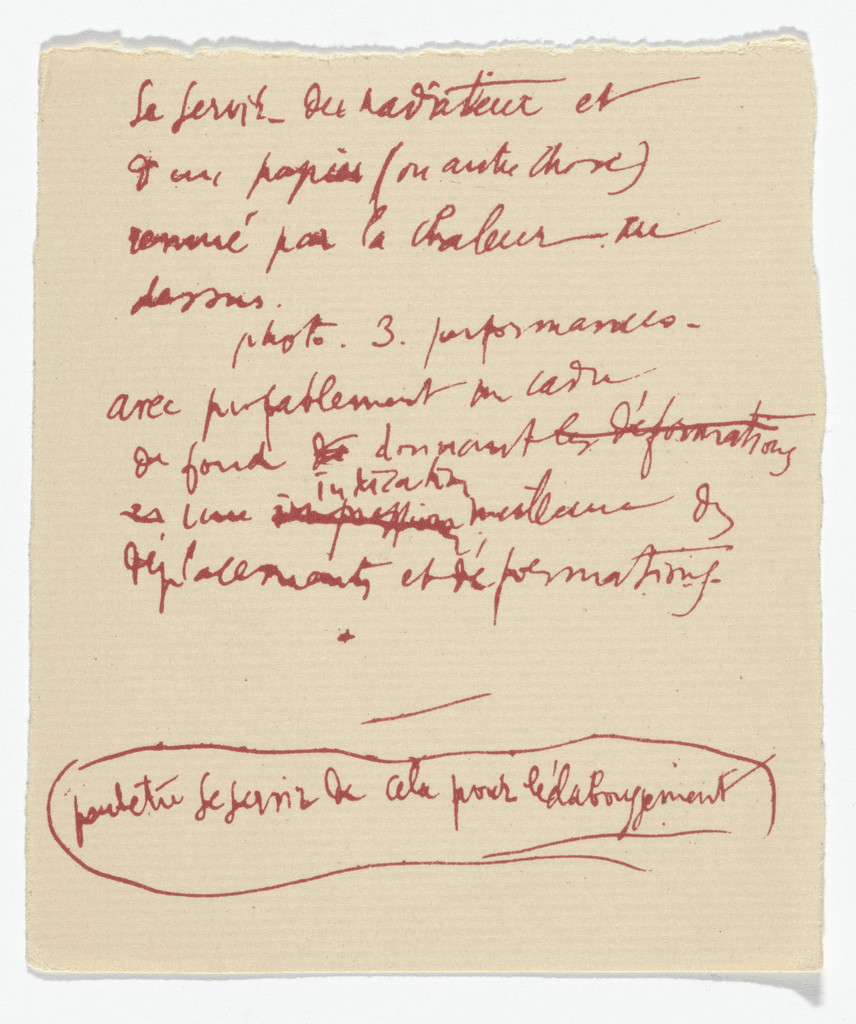 Se servir du radiateur et
d'un papier (ou autre chose)
remué par la chaleur au
dessus.
photo. 3. performances -
avec préférablement un cadre
de fond de donnant les déformations
indication
et une impression meilleure des
déplacements et déformations.
peut etre se servir de cela pour l'éclaboussement